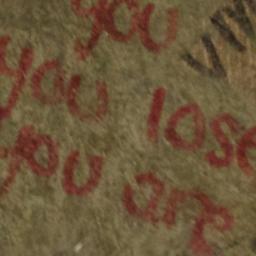 you
you lose
you are